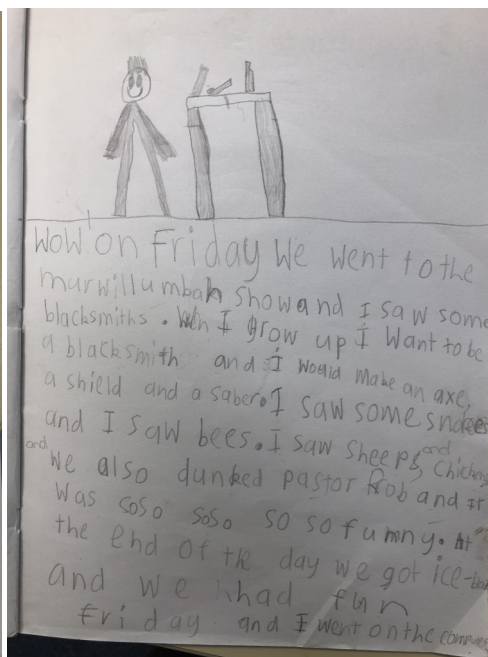 Wow! on Friday we went to the
murwillumbah show and I saw some
blacksmiths. When I grow up I want to be
a blacksmith and I would make an axe,
a shield and a saber. I saw some snakes
and I saw bees. I saw sheeps and chickens
and We also dunked pastor Rob and it
was soso soso so so funny. At
the end of the day we got ice-
and we had fun
Friday and I went on the